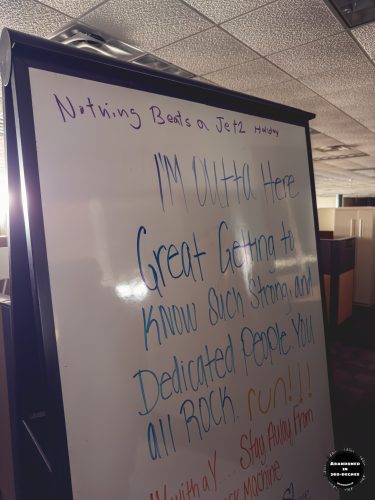 Nothing Beats a Jet2 Holiday
I'M Outta Here
Great Getting to
KNOW Such Strong, and
Dedicated People. You
all ROCK. run!!!
with a Y.... Stay Away From
Machine
ABANDONED
IN
360-DEGREE